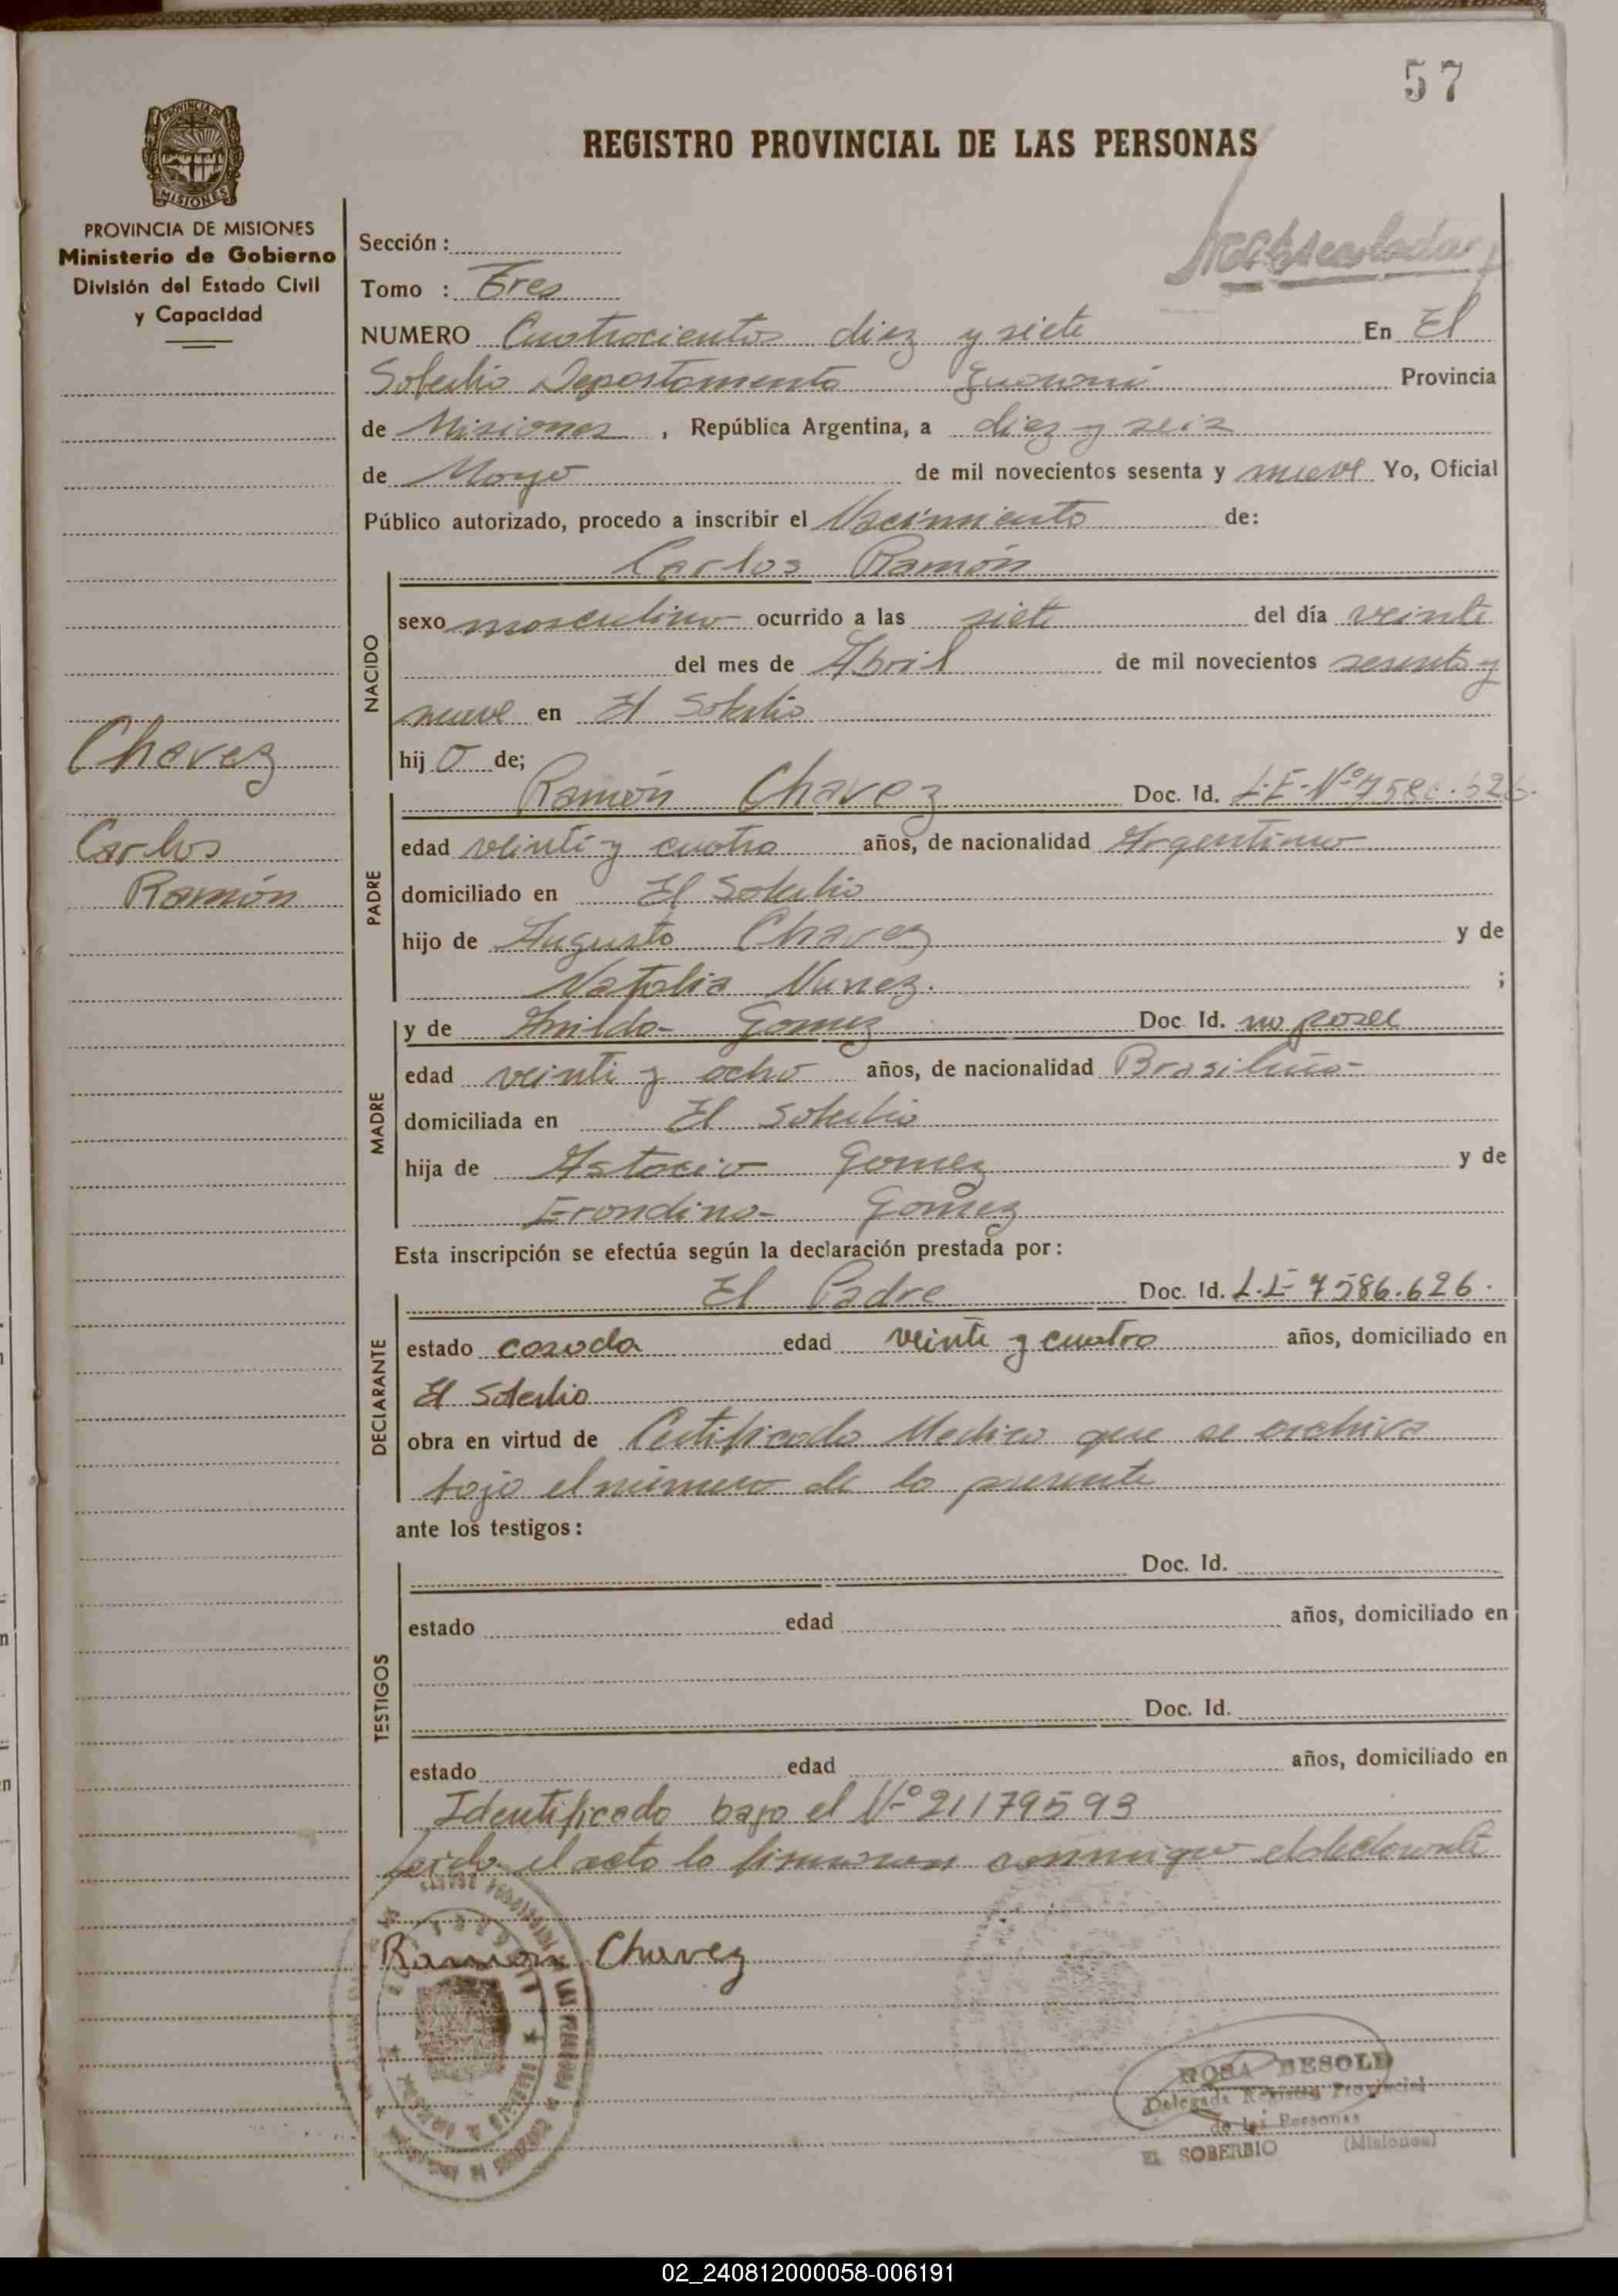 57
PROVINCIA DE
MISIONES
REGISTRO PROVINCIAL DE LAS PERSONAS
PROVINCIA DE MISIONES
Ministerio de Gobierno
División del Estado Civil
y Capacidad
Sección :
Tomo : Tres
NUMERO Cuatrocientos diez y siete En El
Soberbio Departamento Guaraní Provincia
de Misiones , República Argentina, a diez y seis
de Mayo de mil novecientos sesenta y nueve Yo, Oficial
Público autorizado, procedo a inscribir el Nacimiento de:
Carlos Ramón
NACIDO
sexo masculino ocurrido a las siete del día veinte
del mes de Abril de mil novecientos sesenta y
nueve en El Soberbio
hij o de;
Chavez
Carlos
Ramón
PADRE
Ramón Chavez Doc. Id. L.E. Nº 7586.626.
edad veinti y cuatro años, de nacionalidad Argentino
domiciliado en El Soberbio
hijo de Augusto Chavez y de
Natalia Nunez. ;
MADRE
y de Anilda Gomez Doc. Id. no posee
edad veinti y ocho años, de nacionalidad Brasileña
domiciliada en El Soberbio
hija de Astacio Gomez y de
Erondina Gomez
Esta inscripción se efectúa según la declaración prestada por:
DECLARANTE
El Padre Doc. Id. L.E 7586.626.
estado casado edad veinte y cuatro años, domiciliado en
El Soberbio
obra en virtud de Certificado Medico que se archiva
bajo el número de la presente
ante los testigos:
TESTIGOS
Doc. Id.
estado edad años, domiciliado en
Doc. Id.
estado edad años, domiciliado en
Identificado bajo el Nº 21179593
Leida el acta la firmaron conmigo el declarante
Ramon Chavez
ROSA BESOLD
Delegada Registro Provincial
de las Personas
EL SOBERBIO (Misiones)
02_240812000058-006191